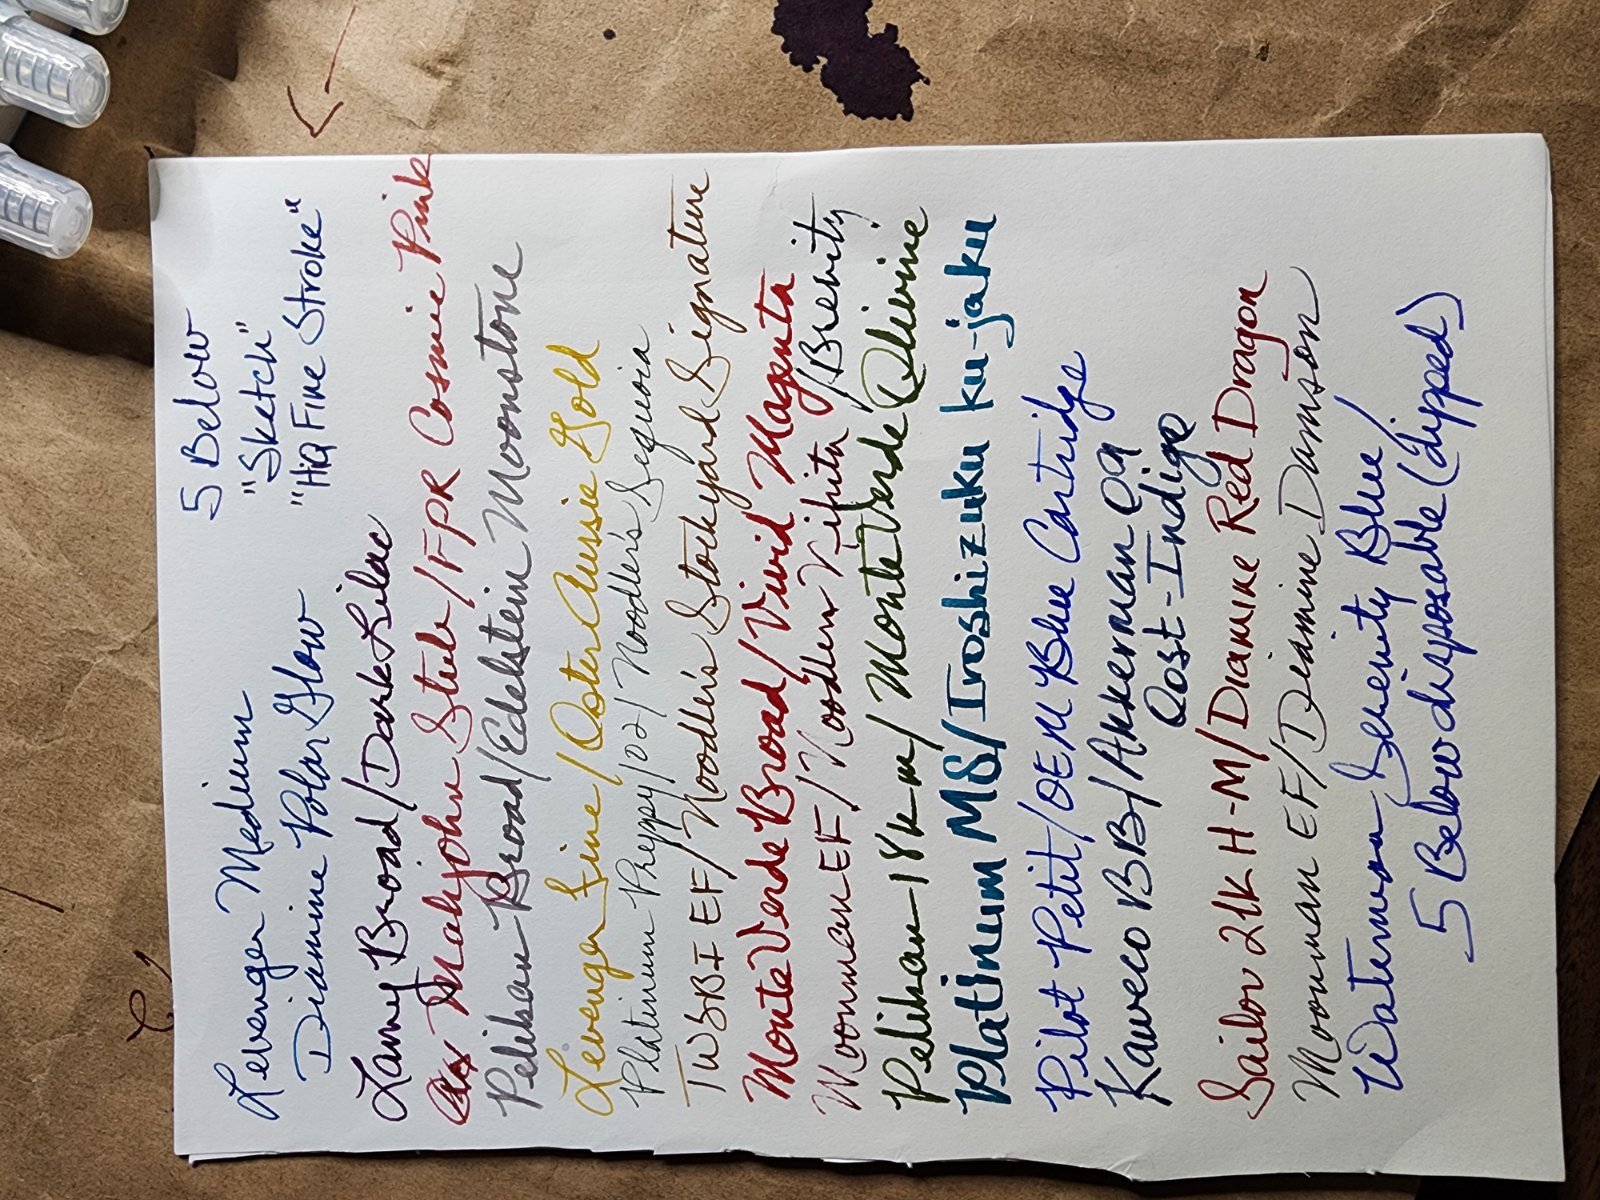 5 Below
"Sketch"
"HiQ Fine Stroke"
Levenger Medium
Diamine Polar Glow
Lamy Broad/Dark Lilac
Majohn Stub/FPR Cosmic Pink
Pelikan-Broad/Edelstein Moonstone
Levenger Fine/Oster Aussie Gold
Platinum Preppy/02/Noodler's Sequoia
TWSBI EF/Noodler's Stockyard Signature
MonteVerde Broad/Vivid Magenta
Moonman EF/Noodlers Nikita/Brevity
Pelikan-18k-m/MonteVerde Olivine
Platinum MS/Iroshizuku ku-jaku
Pilot Petit/OEM Blue Cartridge
Kaweco BB/Akkerman 09
Post-Indigo
Sailor 21k H-M/Diamine Red Dragon
Moonman EF/Diamine Damson
Waterman Serenity Blue/
5 Below disposable (dipped)